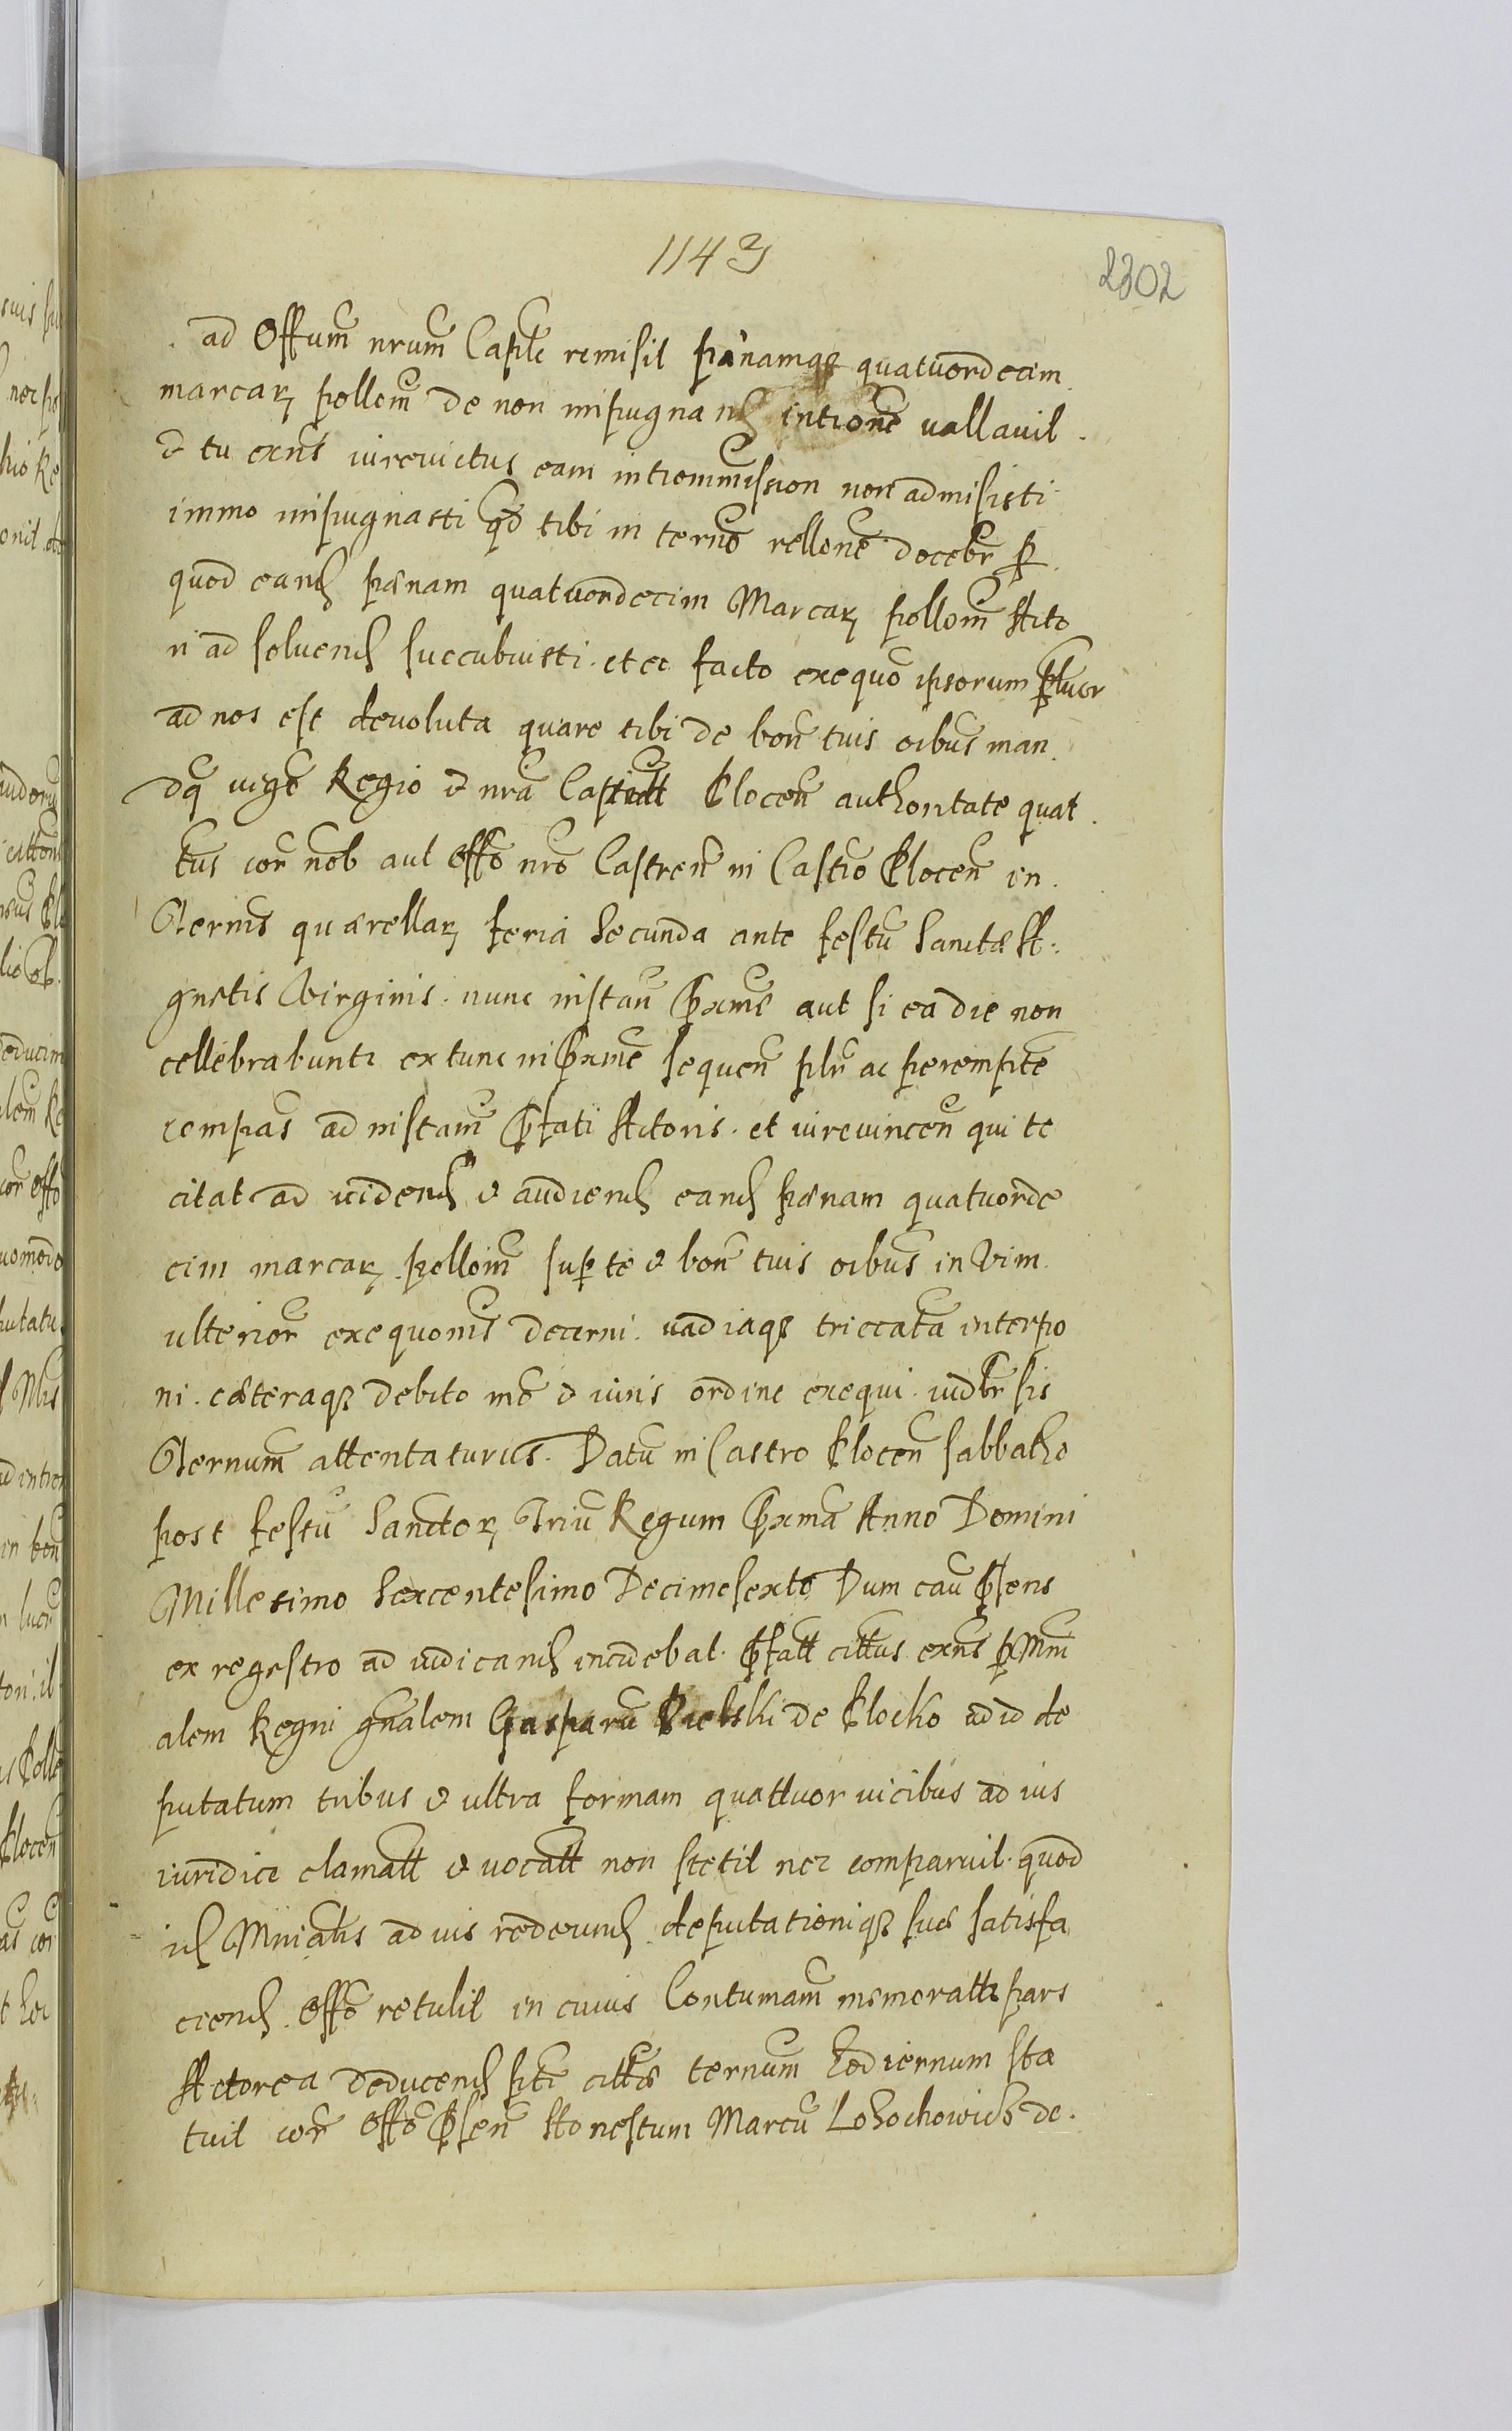 1143
2302
ad Offum nrum Caplē remisit pænamqꝫ quatuordecim
marcaꝝ pollom̃ de non impugnand intrōne vallavit
& tu exn̄s iurevictus eam intrommission non admisisti
immo impugnasti qd tibi in termō rellone docebr p
quod eand pænam quatuordecim Marcaꝝ pollom̃ Acto
ri ad solvend succubuisti. et ec facto exequō ipsorum
ad nos est devoluta quare tibi de bon̄ tuis oībus man
dq̄ vigē Regio & nra Capitt Plocen̄ authoritate quat
tus cor̄ nob aut Offō nrō Castren̄ in Castro Plocen̄ in
Termis quærellaꝝ feria Secunda ante festū Sanctæ A
gnetis Virginis nunc instan̄ pxmē aut si ea die non
cellebrabuntr extunc in pxmē sequen̄ plr̄ ac perempte
compas ad instam̄ pfati Actoris et iurevincen̄ qui te
citat ad videnđ & audienđ eanđ pænam quatuorde
cim marcaꝝ pollom̃ sup te & bon̄ tuis oībus in Vim
ulterior̄ exequonis decerni. vadiaqꝫ triccata interpo
ni. cæteraqꝫ debito mō & iuris ordine exequi. iudbr sis
Ternum̄ attentaturus. Datū in Castro Plocen̄ Sabbatho
post festū Sanctoꝝ Triū Regum pxma Anno Domini
Millesimo Sexcentesimo Decimosexto Dum cau psens
ex regestro ad iudicanđ incidebat pfatt cittus exn̄s p Mni
alem Regni gnalem Gasparū Bielski de Plocko ad id de
putatum tribus & ultra formam quattuor vicibus ad ius
iuridice clamatt & vocatt non stetit nec comparuit quod
iđ Mnialis ad ius redeunđ deputationiqꝫ suæ satisfa
cienđ Offō retulit in cuius Contumam̄ memoratt pars
Actorea deducenđ sibi cittis ternum̄ hodiernum sta
tuit cor̄ Offō psen̄ Honestum Marcū Lohochowicz de